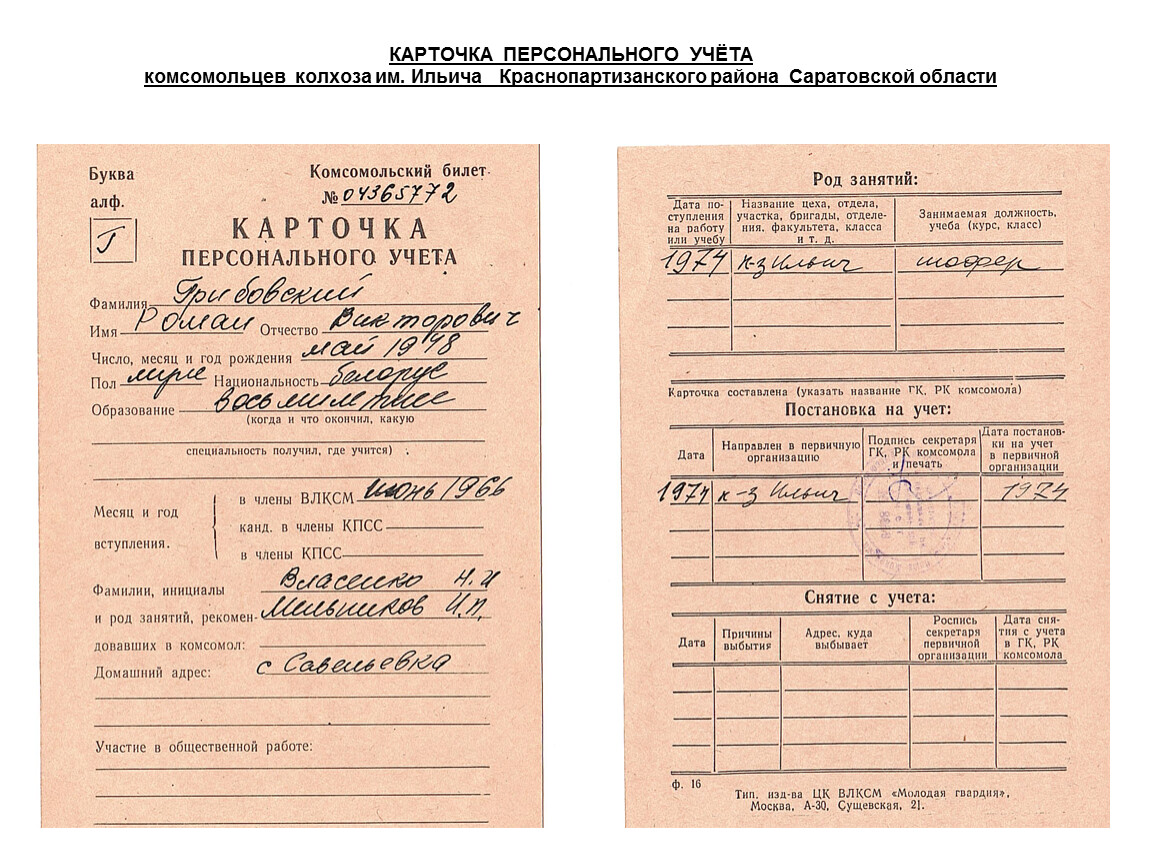 КАРТОЧКА ПЕРСОНАЛЬНОГО УЧЁТА
комсомольцев колхоза им. Ильича Краснопартизанского района Саратовской области
Буква
алф.
Г
Комсомольский билет
№ 04365772
КАРТОЧКА
ПЕРСОНАЛЬНОГО УЧЕТА
Фамилия Грибовский
Имя Роман Отчество Викторович
Число, месяц и год рождения май 1948
Пол муж Национальность белорус
Образование восьмилетнее
(когда и что окончил, какую
специальность получил, где учится)
Месяц и год
вступления.
в члены ВЛКСМ июнь 1966
канд. в члены КПСС
в члены КПСС
Фамилии, инициалы Власенко Н.И
и род занятий, рекомен- Мельников И.П.
довавших в комсомол:
Домашний адрес: с Савельевка
Участие в общественной работе:
Род занятий:
Дата поступления на работу или учебу
Название цеха, отдела, участка, бригады, отделения, факультета, класса и т. д.
Занимаемая должность, учеба (курс, класс)
1974 к-з Ильич шофер
Карточка составлена (указать название ГК, РК комсомола)
Постановка на учет:
Дата
Направлен в первичную организацию
Подпись секретаря ГК, РК комсомола и печать
Дата постановки на учет в первичной организации
1974 к-з Ильич 1974
Снятие с учета:
Дата
Причины выбытия
Адрес, куда выбывает
Роспись секретаря первичной организации
Дата снятия с учета в ГК, РК комсомола
ф. 16
Тип. изд-ва ЦК ВЛКСМ «Молодая гвардия»,
Москва, А-30, Сущевская, 21.